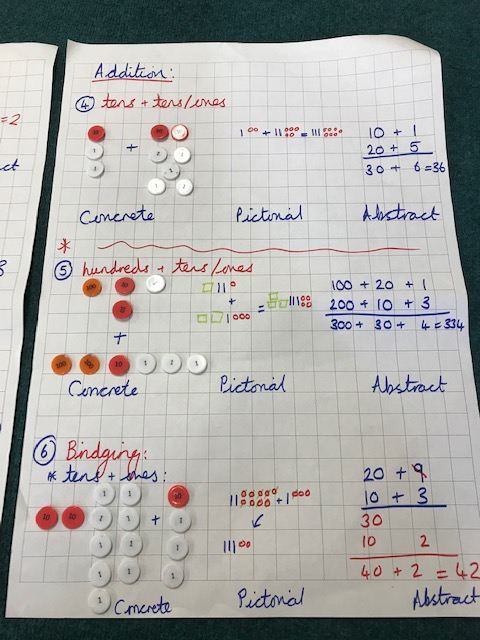 =2
ct
3
Addition:
4 tens + tens/ones
10 10
1 + 1 1
1 1
1 1
10 + 1
20 + 5
30 + 6 = 36
Concrete Pictorial Abstract
*
5 hundreds + tens/ones
100 10
10
+
100 100 10 1 1 1
+
=
100 + 20 + 1
200 + 10 + 3
300 + 30 + 4 = 334
Concrete Pictorial Abstract
6 Bridging:
* tens + ones:
10 10
1 1
1 1
1 1
1 1
1
+
10
1
1
1
+
20 + 9
10 + 3
30
10 2
40 + 2 = 42
Concrete Pictorial Abstract